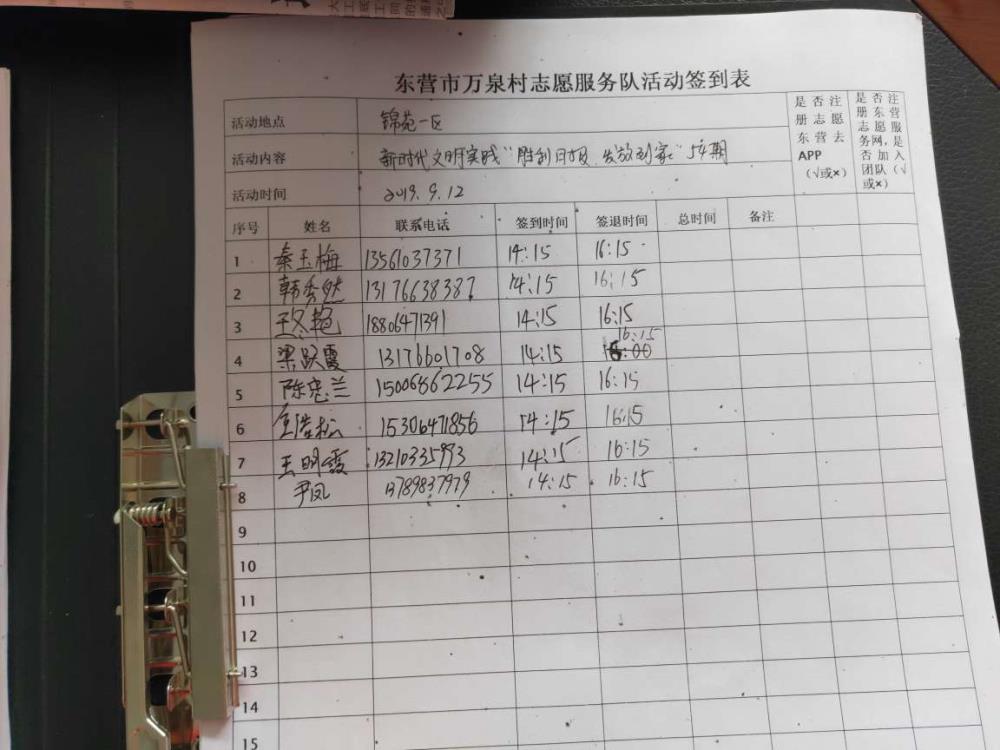 东营市万泉村志愿服务队活动签到表
活动地点 锦苑一区
活动内容 新时代文明实践“胜利日报 发放到家”54期
活动时间 2019.9.12
是否注册志愿东营去APP（√或×）
是否注册东营志愿服务网,是否加入团队（√或×）
序号 姓名 联系电话 签到时间 签退时间 总时间 备注
1 秦玉梅 13561037371 14:15 16:15
2 韩秀 13176638387 14:15 16:15
3 王冬艳 18806471391 14:15 16:15
4 梁跃霞 13176601708 14:15 16:15
5 陈忠兰 15006862255 14:15 16:15
6 浩松 15306471856 14:15 16:15
7 王明霞 13210335993 14:15 16:15
8 尹凤 13789837979 14:15 16:15
9
10
11
12
13
14
15